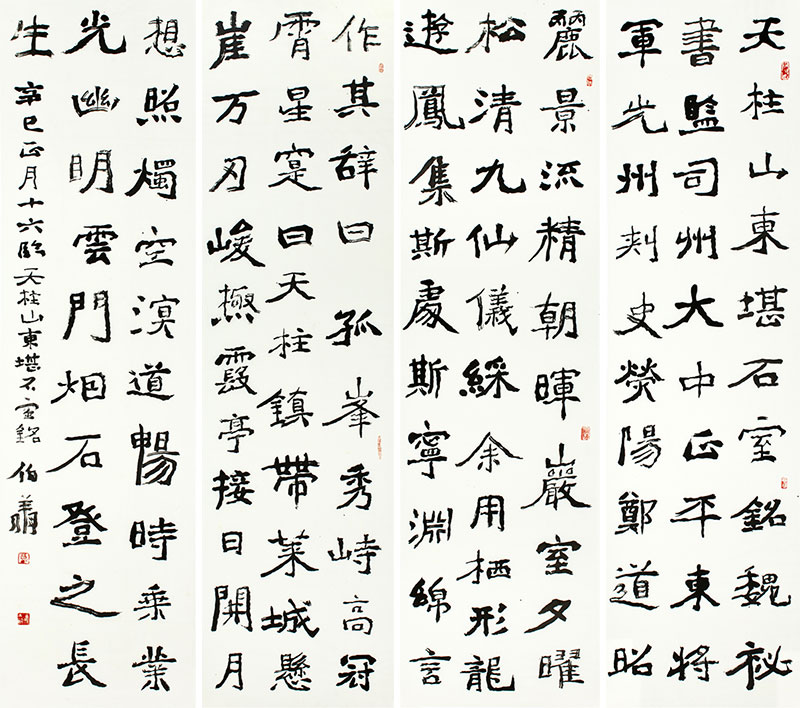 天柱山東堪石室銘魏祕
書監司州大中正平東將
軍光州刾史熒陽鄭道昭
麗景流精朝暉巖室夕曜
松清九仙儀綵余用栖形龍
遊鳳集斯處斯寧淵綿言
作其辭曰孤峯秀峙高冠
霄星寔曰天柱鎮帶萊城懸
崖万刃峻極霞亭接日開月
想照燭空溟道暢時乘業
光幽明雲門烟石登之長
生 辛巳正月十六臨天柱山東堪石室銘 伯